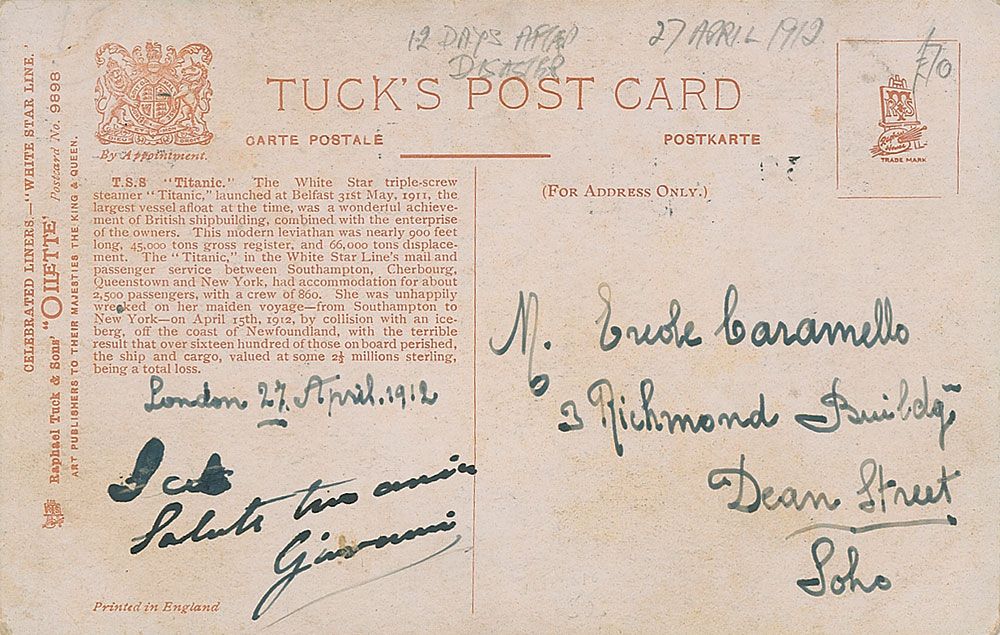 12 DAYS AFTER
DISASTER
27 APRIL 1912
£10
TUCK'S POST CARD
CARTE POSTALE
POSTKARTE
By Appointment.
TRADE MARK
(FOR ADDRESS ONLY.)
CELEBRATED LINERS.—"WHITE STAR LINE."
Raphael Tuck & Sons' "OILETTE" Postcard No. 9898
ART PUBLISHERS TO THEIR MAJESTIES THE KING & QUEEN.
T.S.S "Titanic." The White Star triple-screw
steamer "Titanic," launched at Belfast 31st May, 1911, the
largest vessel afloat at the time, was a wonderful achieve-
ment of British shipbuilding, combined with the enterprise
of the owners. This modern leviathan was nearly 900 feet
long, 45,000 tons gross register, and 66,000 tons displace-
ment. The "Titanic," in the White Star Line's mail and
passenger service between Southampton, Cherbourg,
Queenstown and New York, had accommodation for about
2,500 passengers, with a crew of 860. She was unhappily
wrecked on her maiden voyage—from Southampton to
New York—on April 15th, 1912, by collision with an ice-
berg, off the coast of Newfoundland, with the terrible
result that over sixteen hundred of those on board perished,
the ship and cargo, valued at some 2½ millions sterling,
being a total loss.
London 27. April. 1912
Salute tuo amico
Giovanni
Printed in England
M. Ercole Caramello
3 Richmond Buildgs
Dean Street
Soho